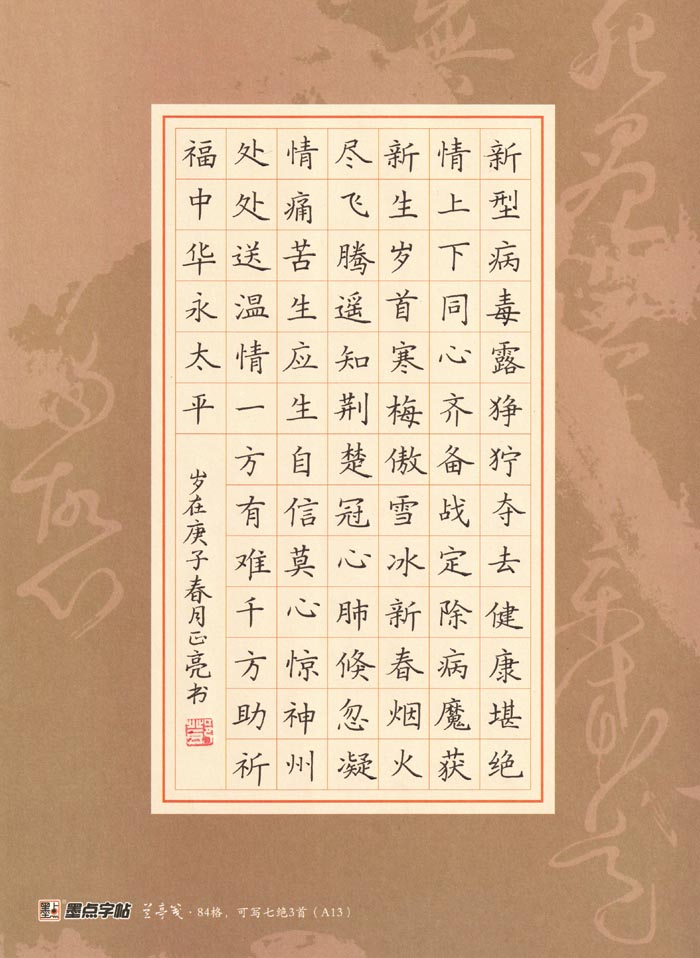 新型病毒露狰狞夺去健康堪绝
情上下同心齐备战定除病魔获
新生岁首寒梅傲雪冰新春烟火
尽飞腾遥知荆楚冠心肺倏忽凝
情痛苦生应生自信莫心惊神州
处处送温情一方有难千方助祈
福中华永太平
岁在庚子春月正亮书
墨点字帖 兰亭笺·84格，可写七绝3首（A13）